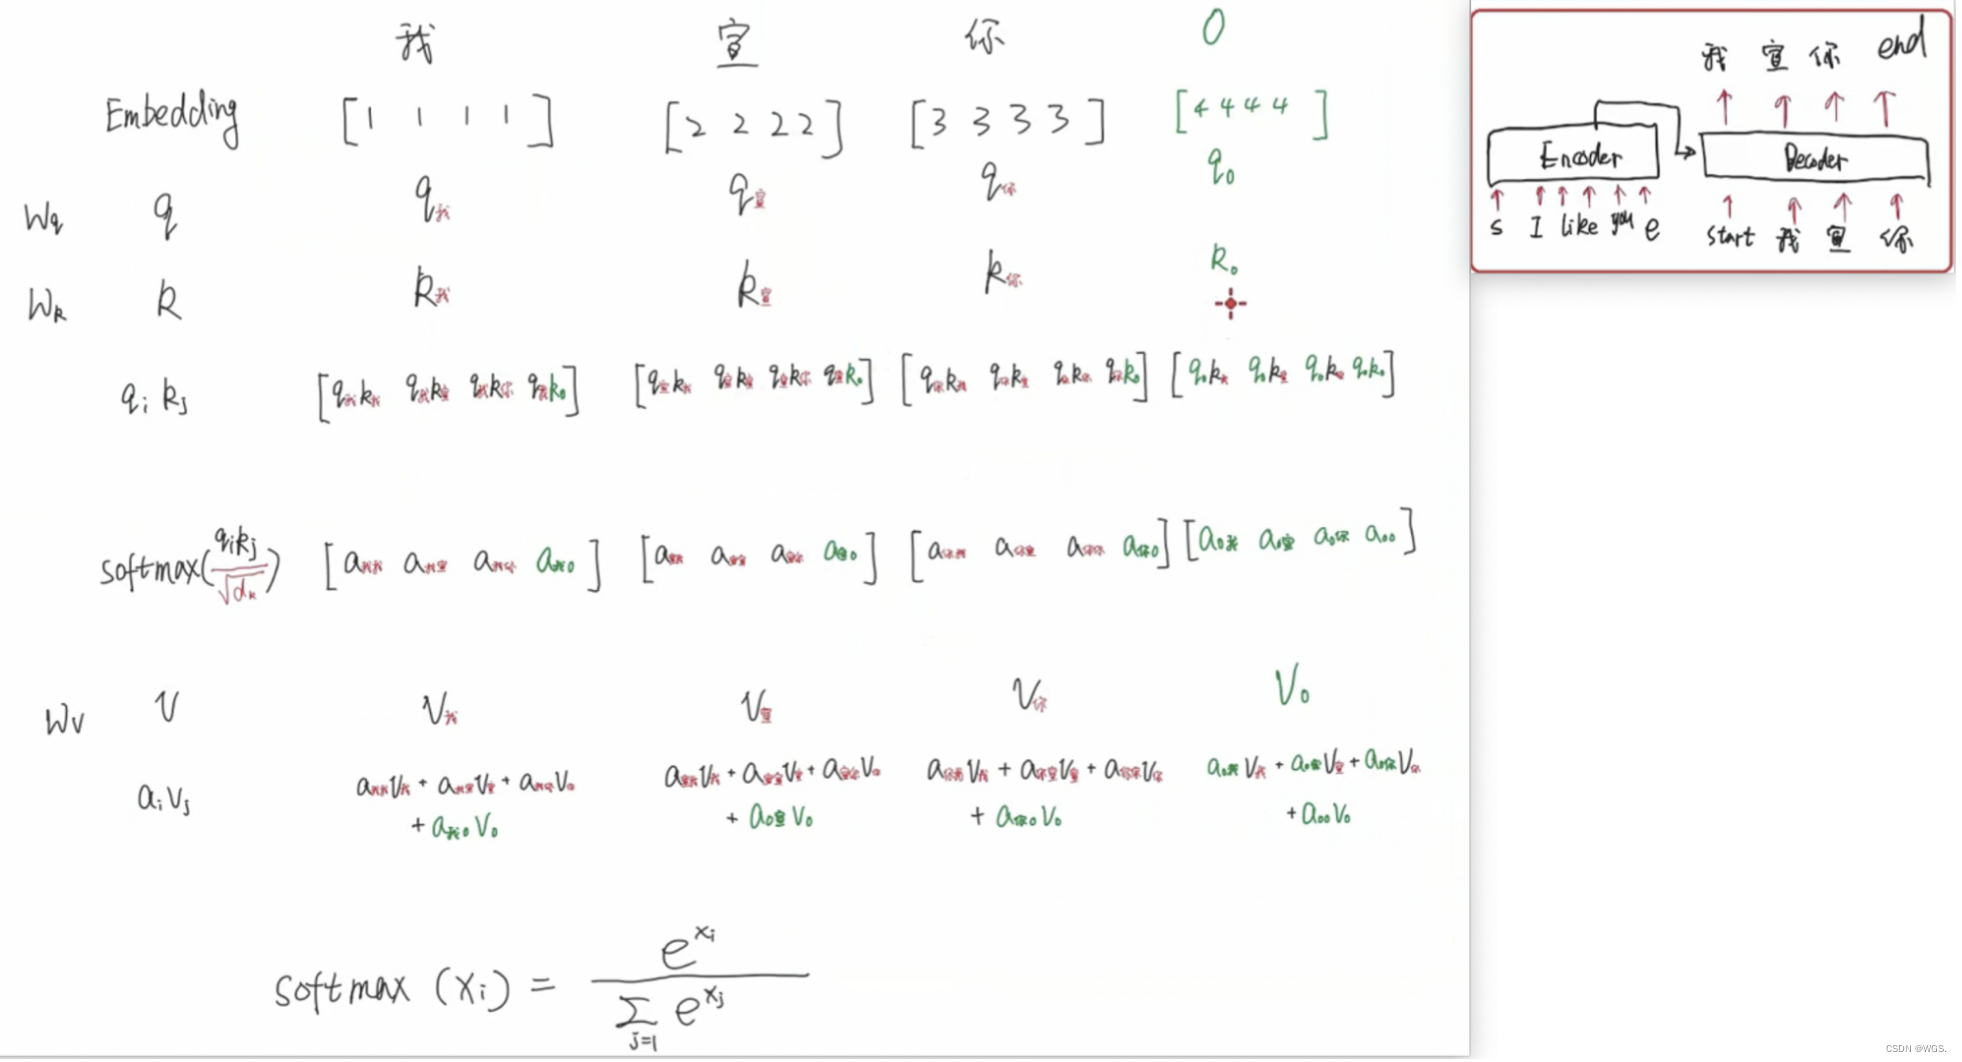 我 宣 你 0
Embedding [1 1 1 1] [2 2 2 2] [3 3 3 3] [4 4 4 4]
Wq q q我 q宣 q你 q0
Wk k k我 k宣 k你 k0
qi kj [q我k我 q我k宣 q我k你 q我k0] [q宣k我 q宣k宣 q宣k你 q宣k0] [q你k我 q你k宣 q你k你 q你k0] [q0k我 q0k宣 q0k你 q0k0]
softmax(qikj/√dk) [a我我 a我宣 a我你 a我0] [a宣我 a宣宣 a宣你 a宣0] [a你我 a你宣 a你你 a你0] [a0我 a0宣 a0你 a00]
Wv V V我 V宣 V你 V0
aivj a我我V我 + a我宣V宣 + a我你V你 a宣我V我 + a宣宣V宣 + a宣你V你 a你我V我 + a你宣V宣 + a你你V你 a0我V我 + a0宣V宣 + a0你V你
+ a我0V0 + a0宣V0 + a你0V0 + a00V0
softmax (xi) = e^xi / Σj=1 e^xj
我 宣 你 end
Encoder Decoder
s I like you e start 我 宣 你
CSDN @WGS.